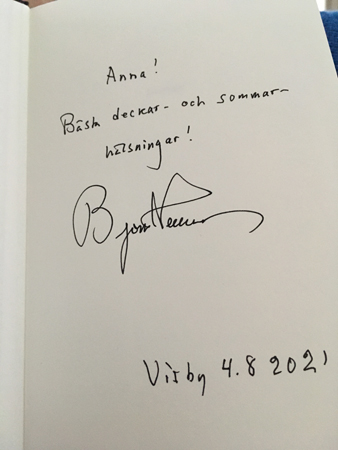 Anna!
Bästa deckar- och sommar-
hälsningar!
Björn
Visby 4.8 2021